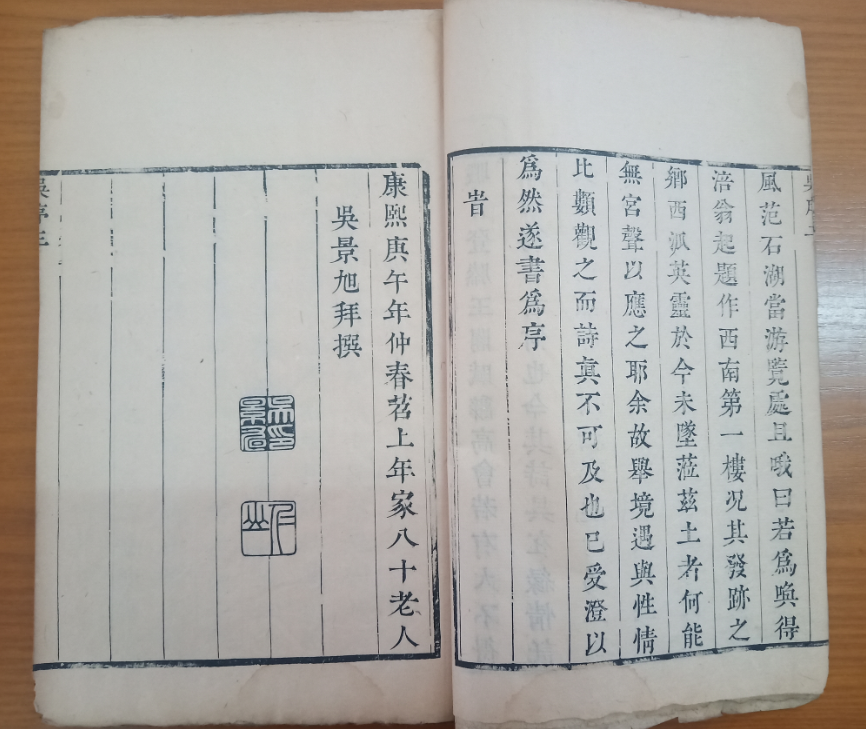 風范石湖當游覽處且哦曰若爲喚得
涪翁起題作西南第一樓况其發跡之
鄉西泒英靈於今未墜蒞茲土者何能
無宮聲以應之耶余故舉境遇與性情
比類觀之而詩眞不可及也已受澄以
爲然遂書爲序
旹
康熙庚午年仲春苕上年家八十老人
吳景旭拜撰
吳印景旭
吳序三